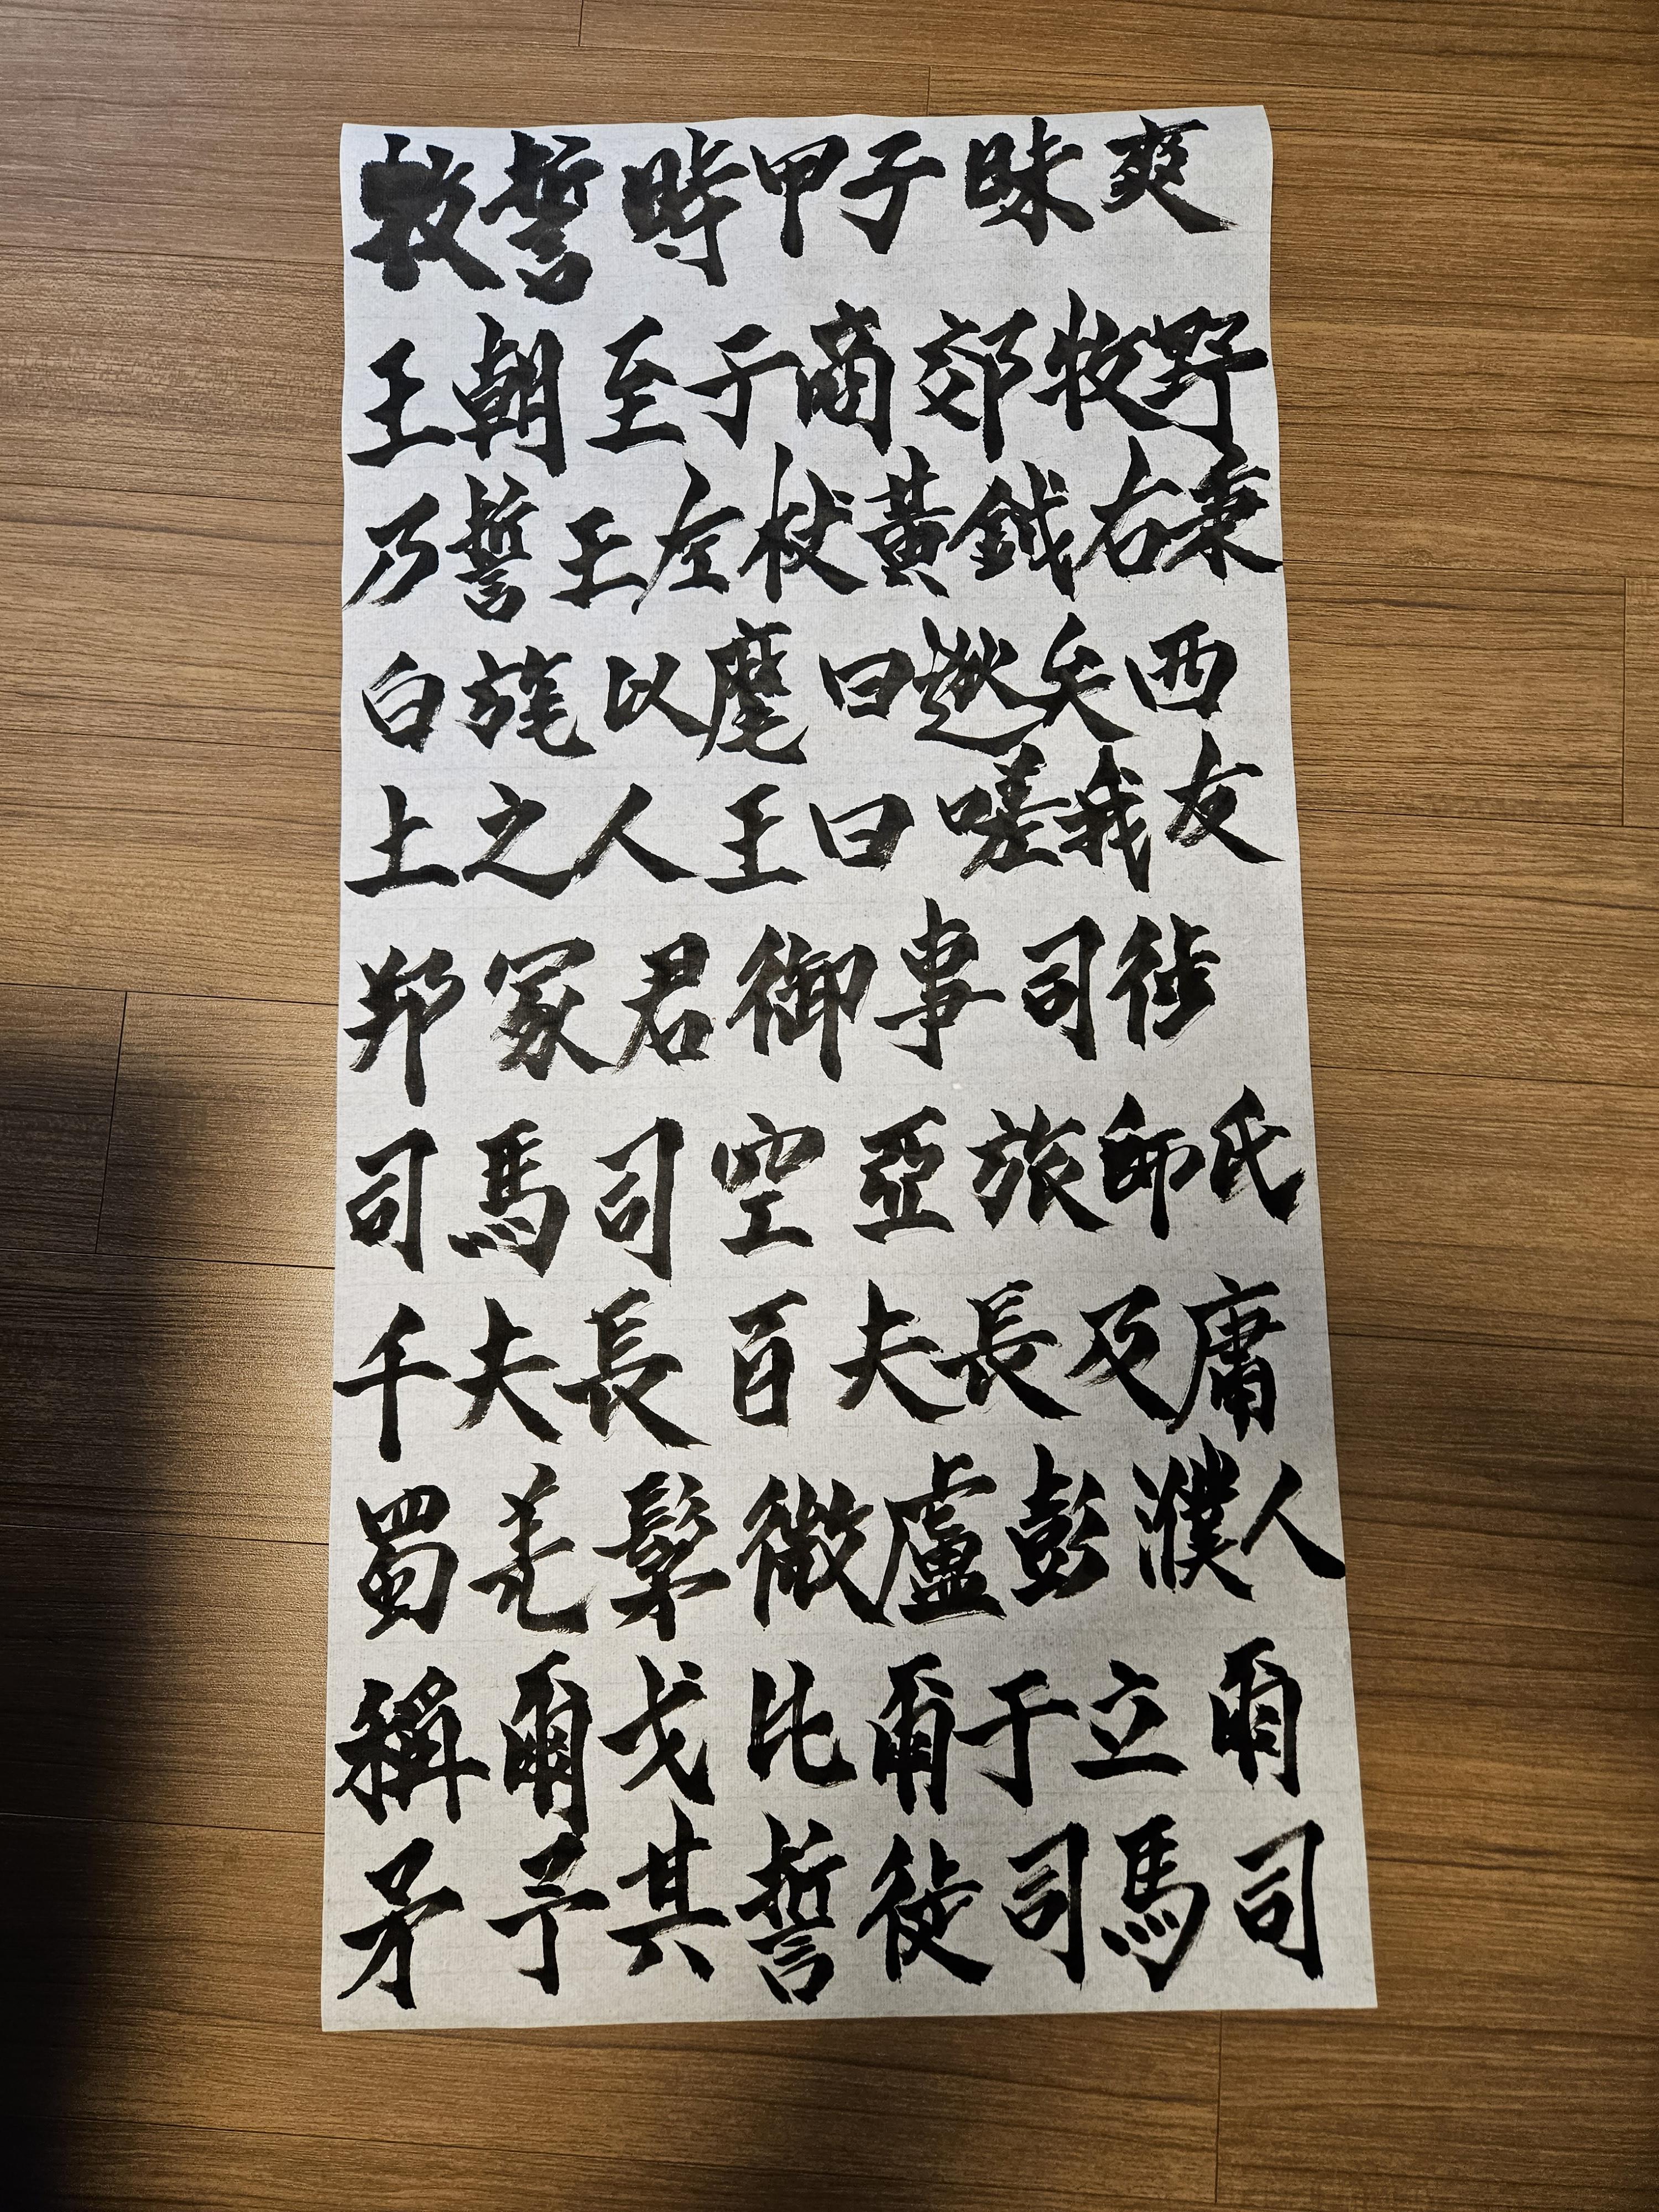 牧誓時甲子昧爽
王朝至于商郊牧野
乃誓王左杖黃鉞右秉
白旄以麾曰逖矣西
土之人王曰嗟我友
邦冢君御事司徒
司馬司空亞旅師氏
千夫長百夫長及庸
蜀羌髳微盧彭濮人
稱爾戈比爾干立爾
矛予其誓徒司馬司